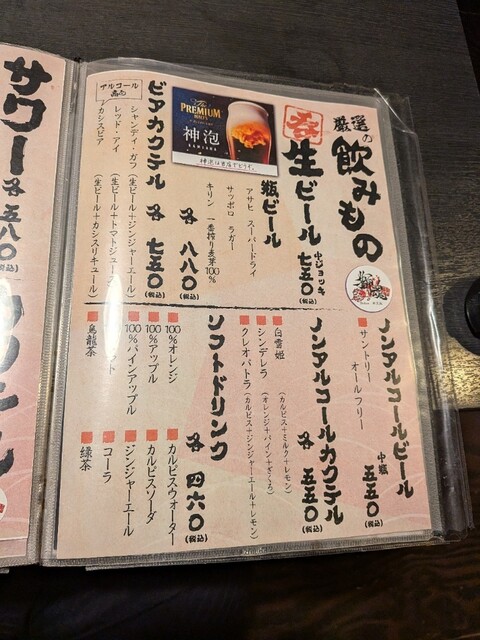 厳選の
飲みもの
生ビール 中ジョッキ 七五〇(税込)
The PREMIUM MALT'S
神泡
KAMIAWA
神泡は当店でどうぞ。
瓶ビール
アサヒ スーパードライ
サッポロ ラガー
キリン 一番搾り麦芽100%
各 八八〇(税込)
ビアカクテル 各 七五〇(税込)
アルコール
シャンディ・ガフ(生ビール+ジンジャーエール)
レッド・アイ(生ビール+トマトジュース)
カシスビア(生ビール+カシスリキュール)
ノンアルコールビール
サントリー オールフリー
中瓶 五五〇(税込)
ノンアルコールカクテル 各 五五〇(税込)
白雪姫(カルピス+ミルク+レモン)
シンデレラ(オレンジ+パイン+ざくろ)
クレオパトラ(カルピス+ジンジャーエール+レモン)
ソフトドリンク 各 四六〇(税込)
100%オレンジ
100%アップル
100%パインアップル
烏龍茶
カルピスウォーター
カルピスソーダ
ジンジャーエール
コーラ
緑茶
サワー 各 五八〇(税込)